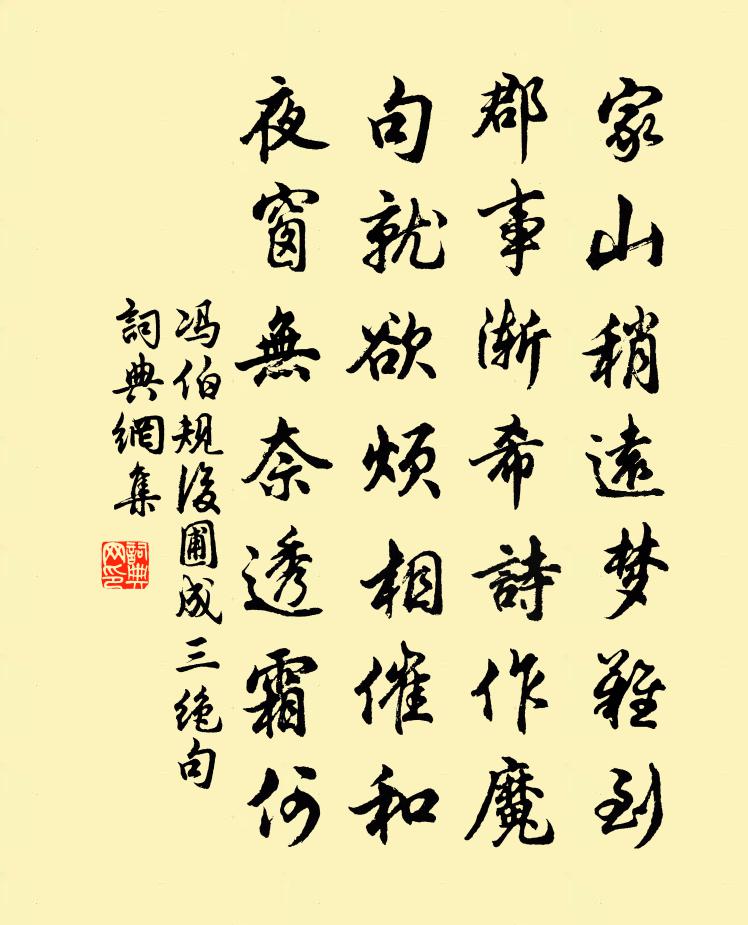 家山稍遠梦難到
郡事漸希詩作魔
句就欲煩相催和
夜窗無奈透霜何
冯伯規後圃成三绝句
詞典網集
詞典网印